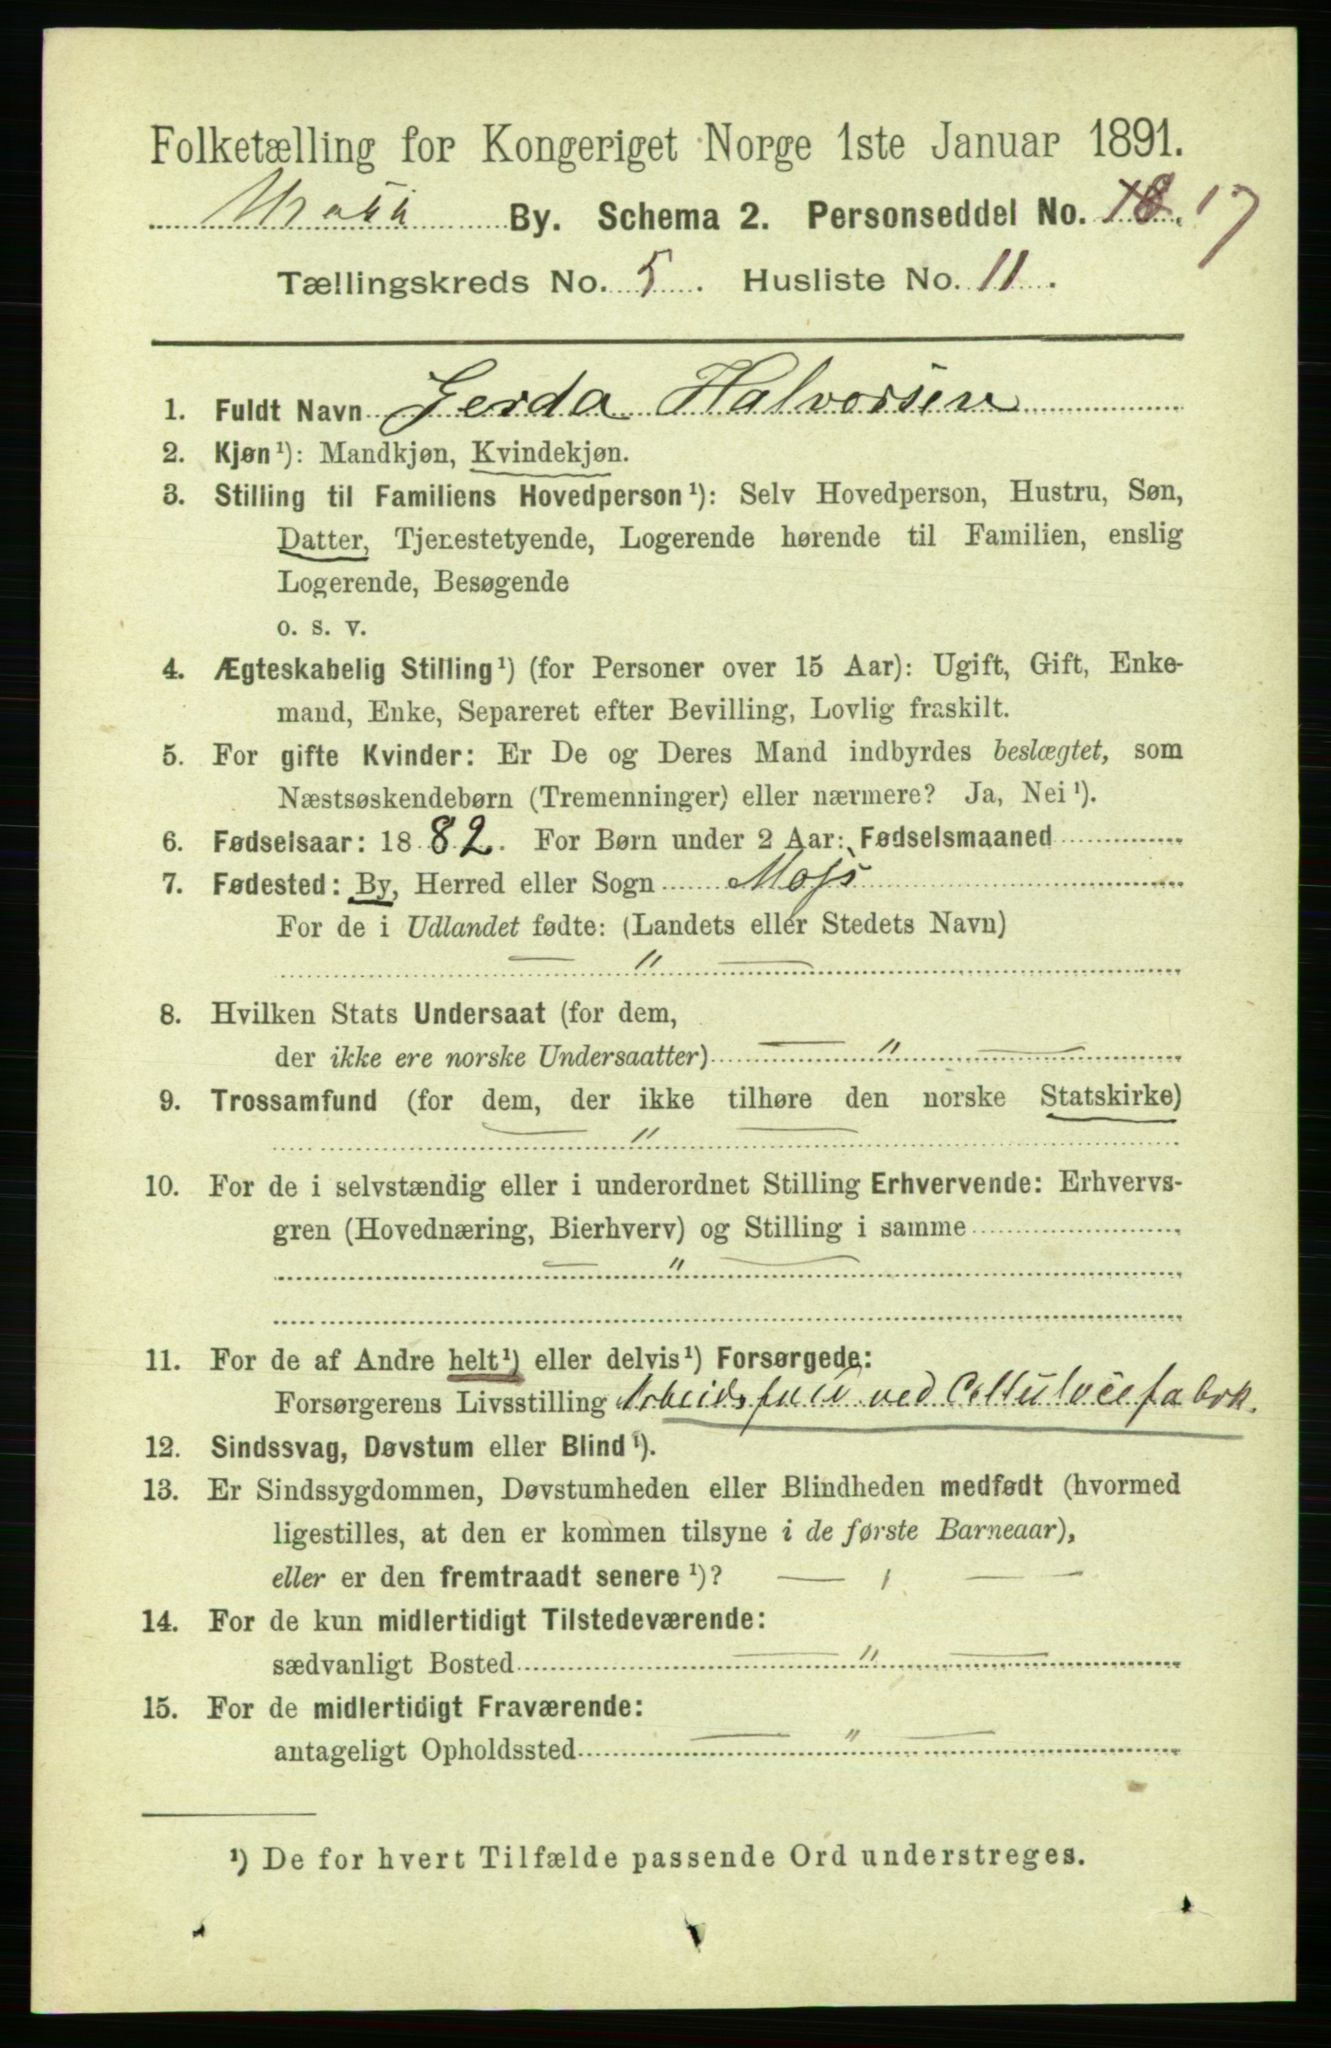 Folketælling for Kongeriget Norge 1ste Januar 1891.
By. Schema 2. Personseddel No. 18. 17
Tællingskreds No. 5. Husliste No. 11.
1. Fuldt Navn Gerda Halvorsen
2. Kjøn¹): Mandkjøn, Kvindekjøn.
3. Stilling til Familiens Hovedperson¹): Selv Hovedperson, Hustru, Søn,
Datter, Tjenestetyende, Logerende hørende til Familien, enslig
Logerende, Besøgende
o. s. v.
4. Ægteskabelig Stilling¹) (for Personer over 15 Aar): Ugift, Gift, Enke-
mand, Enke, Separeret efter Bevilling, Lovlig fraskilt.
5. For gifte Kvinder: Er De og Deres Mand indbyrdes beslægtet, som
Næstsøskendebørn (Tremenninger) eller nærmere? Ja, Nei¹).
6. Fødselsaar: 1882. For Børn under 2 Aar: Fødselsmaaned
7. Fødested: By, Herred eller Sogn Moss
For de i Udlandet fødte: (Landets eller Stedets Navn)
— " —
8. Hvilken Stats Undersaat (for dem,
der ikke ere norske Undersaatter) — " —
9. Trossamfund (for dem, der ikke tilhøre den norske Statskirke)
— " —
10. For de i selvstændig eller i underordnet Stilling Erhvervende: Erhvervs-
gren (Hovednæring, Bierhverv) og Stilling i samme
— " —
11. For de af Andre helt¹) eller delvis¹) Forsørgede:
Forsørgerens Livsstilling ved
12. Sindssvag, Døvstum eller Blind¹).
13. Er Sindssygdommen, Døvstumheden eller Blindheden medfødt (hvormed
ligestilles, at den er kommen tilsyne i de første Barneaar),
eller er den fremtraadt senere¹)? — ı —
14. For de kun midlertidigt Tilstedeværende:
sædvanligt Bosted — " —
15. For de midlertidigt Fraværende:
antageligt Opholdssted — " —
¹) De for hvert Tilfælde passende Ord understreges.